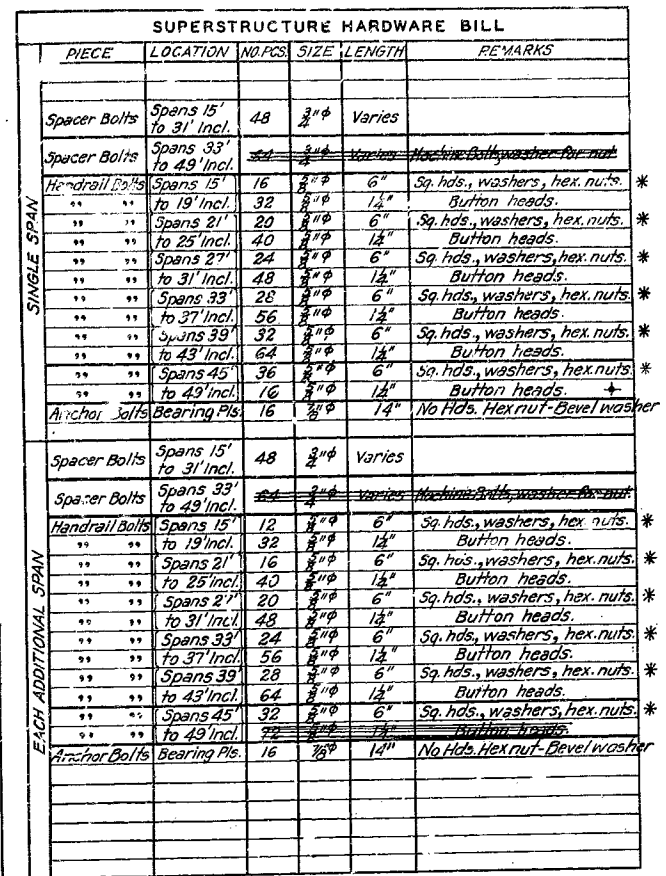 SUPERSTRUCTURE HARDWARE BILL
PIECE LOCATION NO.PCS. SIZE LENGTH REMARKS
SINGLE SPAN
Spacer Bolts Spans 15' to 31' Incl. 48 3/4"φ Varies
Spacer Bolts Spans 33' to 49' Incl. 64 3/4"φ Varies Machine Bolts, washer for nut
Handrail Bolts Spans 15' 16 5/8"φ 6" Sq. hds., washers, hex. nuts. *
" " to 19' Incl. 32 5/8"φ 1 1/4" Button heads.
" " Spans 21' 20 5/8"φ 6" Sq. hds., washers, hex. nuts. *
" " to 25' Incl. 40 5/8"φ 1 1/4" Button heads.
" " Spans 27' 24 5/8"φ 6" Sq. hds., washers, hex. nuts. *
" " to 31' Incl. 48 5/8"φ 1 1/4" Button heads.
" " Spans 33' 28 5/8"φ 6" Sq. hds., washers, hex. nuts. *
" " to 37' Incl. 56 5/8"φ 1 1/4" Button heads.
" " Spans 39' 32 5/8"φ 6" Sq. hds., washers, hex. nuts. *
" " to 43' Incl. 64 5/8"φ 1 1/4" Button heads.
" " Spans 45' 36 5/8"φ 6" Sq. hds., washers, hex. nuts. *
" " to 49' Incl. 16 5/8"φ 1 1/4" Button heads.
Anchor Bolts Bearing Pls. 16 7/8"φ 14" No Hds. Hex nut-Bevel washer
EACH ADDITIONAL SPAN
Spacer Bolts Spans 15' to 31' Incl. 48 3/4"φ Varies
Spacer Bolts Spans 33' to 49' Incl. 64 3/4"φ Varies Machine Bolts, washer for nut
Handrail Bolts Spans 15' 12 5/8"φ 6" Sq. hds., washers, hex. nuts. *
" " to 19' Incl. 32 5/8"φ 1 1/4" Button heads.
" " Spans 21' 16 5/8"φ 6" Sq. hds., washers, hex. nuts. *
" " to 25' Incl. 40 5/8"φ 1 1/4" Button heads.
" " Spans 27' 20 5/8"φ 6" Sq. hds., washers, hex. nuts. *
" " to 31' Incl. 48 5/8"φ 1 1/4" Button heads.
" " Spans 33' 24 5/8"φ 6" Sq. hds., washers, hex. nuts. *
" " to 37' Incl. 56 5/8"φ 1 1/4" Button heads.
" " Spans 39' 28 5/8"φ 6" Sq. hds., washers, hex. nuts. *
" " to 43' Incl. 64 5/8"φ 1 1/4" Button heads.
" " Spans 45' 32 5/8"φ 6" Sq. hds., washers, hex. nuts. *
" " to 49' Incl. 72 5/8"φ 1 1/4" Button heads.
Anchor Bolts Bearing Pls. 16 7/8"φ 14" No Hds. Hex nut-Bevel washer